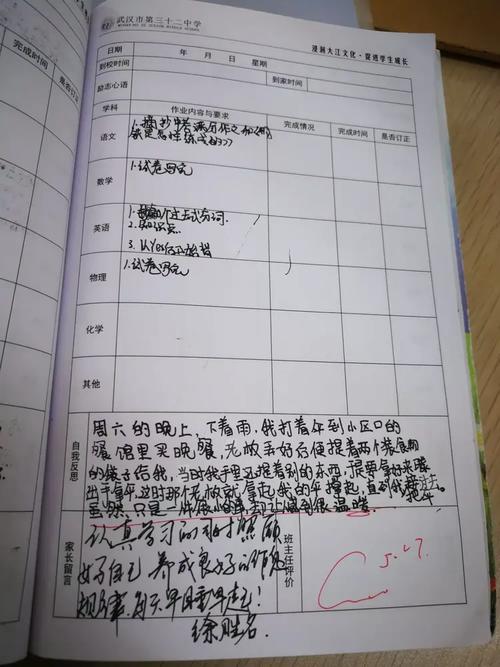 武汉市第三十二中学
浸润大江文化·促进学生成长
完成时间 是否订正
日期 年 月 日 星期
到校时间 到家时间
励志心语
学科 作业内容与要求 完成情况 完成时间 是否订正
语文 1.摘抄中考满分作文
数学 1.试卷写完
英语 1. 过去式分词
2.
3.
物理 1.试卷写完
化学
其他
自我反思
周六的晚上，下着雨，我打着伞到小区口的
餐馆里买晚餐，老板弄好后便提着两个装食物
的袋子给我，当时我手里还提着别的东西，很
出手拿伞，这时那个老板就拿起我的伞撑起，直到我
虽然只是一件很小的事却让我感到很温暖。
家长留言
认真学习的同时照顾
好自己 养成良好的作息
规律，每天早睡早起！
徐胜名.
班主任评价
5.27.